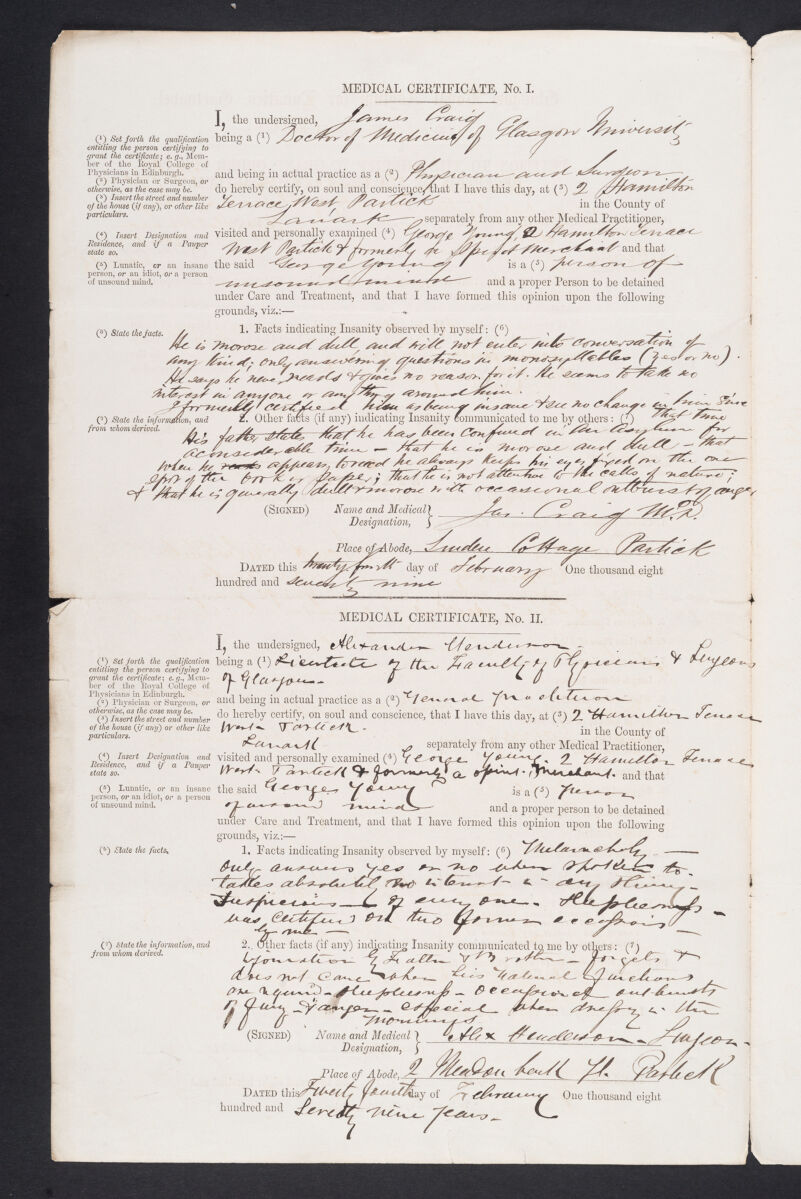 MEDICAL CERTIFICATE, No. I.
I, the undersigned, James Craig
(¹) Set forth the qualification entitling the person certifying to grant the certificate; e.g., Member of the Royal College of Physicians in Edinburgh.
being a (¹) Doctor of Medicine of Glasgow University
(²) Physician or Surgeon, or otherwise, as the case may be.
and being in actual practice as a (²) Physician and Surgeon
(³) Insert the street and number of the house (if any), or other like particulars.
do hereby certify, on soul and conscience, that I have this day, at (³) 2 Hamilton
Terrace West Partick in the County of
Lanark separately from any other Medical Practitioner,
(⁴) Insert Designation and Residence, and if a Pauper state so.
visited and personally examined (⁴) George Young, 2 Hamilton Terrace
West Partick & formerly a Spirit Merchant and that
(⁵) Lunatic, or an insane person, or an idiot, or a person of unsound mind.
the said George Young is a (⁵) person of
unsound mind and a proper Person to be detained
under Care and Treatment, and that I have formed this opinion upon the following
grounds, viz.:—
1. Facts indicating Insanity observed by myself: (⁶)
(⁶) State the facts.
He is morose and dull, and will not enter into conversation of
any kind; only answering questions in monosyllables (yes or no).
He says he never reads & gives no reason for it. He seems to take no
interest in anyone or anything around him.
I formerly certified him as being insane & see no change in him since
that time
2. Other facts (if any) indicating Insanity communicated to me by others: (⁷)
(⁷) State the information, and from whom derived.
His father states that he has been confined in an Asylum for
a considerable time – that he is morose and dull – that
when he appears to read he always keeps his eyes fixed on the one
spot of the book or paper; that he is not attentive to the calls of nature;
& that he is generally dull & morose with occasional outbursts of anger
(SIGNED) Name and Medical Designation, Jas. Craig M.D.
Place of Abode, Linden Cottage Partick
DATED this twenty fourth day of February One thousand eight
hundred and seventy nine
MEDICAL CERTIFICATE, No. II.
I, the undersigned, Alexander Henderson
(¹) Set forth the qualification entitling the person certifying to grant the certificate; e.g., Member of the Royal College of Physicians in Edinburgh.
being a (¹) Licentiate of the Faculty of Physicians & Surgeons
of Glasgow
(²) Physician or Surgeon, or otherwise, as the case may be.
and being in actual practice as a (²) General practitioner
(³) Insert the street and number of the house (if any) or other like particulars.
do hereby certify, on soul and conscience, that I have this day, at (³) 2 Hamilton Terrace
West Partick. in the County of
Lanark separately from any other Medical Practitioner,
(⁴) Insert Designation and Residence, and if a Pauper state so.
visited and personally examined (⁴) George Young. 2 Hamilton Terrace
West Partick & formerly a spirit Merchant. and that
(⁵) Lunatic, or an insane person, or an idiot, or a person of unsound mind.
the said George Young is a (⁵) person
of unsound mind and a proper person to be detained
under Care and Treatment, and that I have formed this opinion upon the following
grounds, viz:—
1. Facts indicating Insanity observed by myself: (⁶) Melancholy –
(⁶) State the facts.
only answers yes or no when spoken to.
takes absolutely no interest in any thing –
Suspicious of every one. Sleeplessness –
was certified on two former occasions –
by me –
2. Other facts (if any) indicating Insanity communicated to me by others: (⁷)
(⁷) State the information, and from whom derived.
Father & Brother – forgets &
does not care when his natural functions
are – sleeplessness – occasional outbursts
of fury & anger – especial when dressing in the
Mornings
(SIGNED) Name and Medical Designation, Alex Henderson – Surgeon –
Place of Abode, 2 Meadow bank St. Partick
DATED this Twenty fourth day of February One thousand eight
hundred and Seventy nine years –